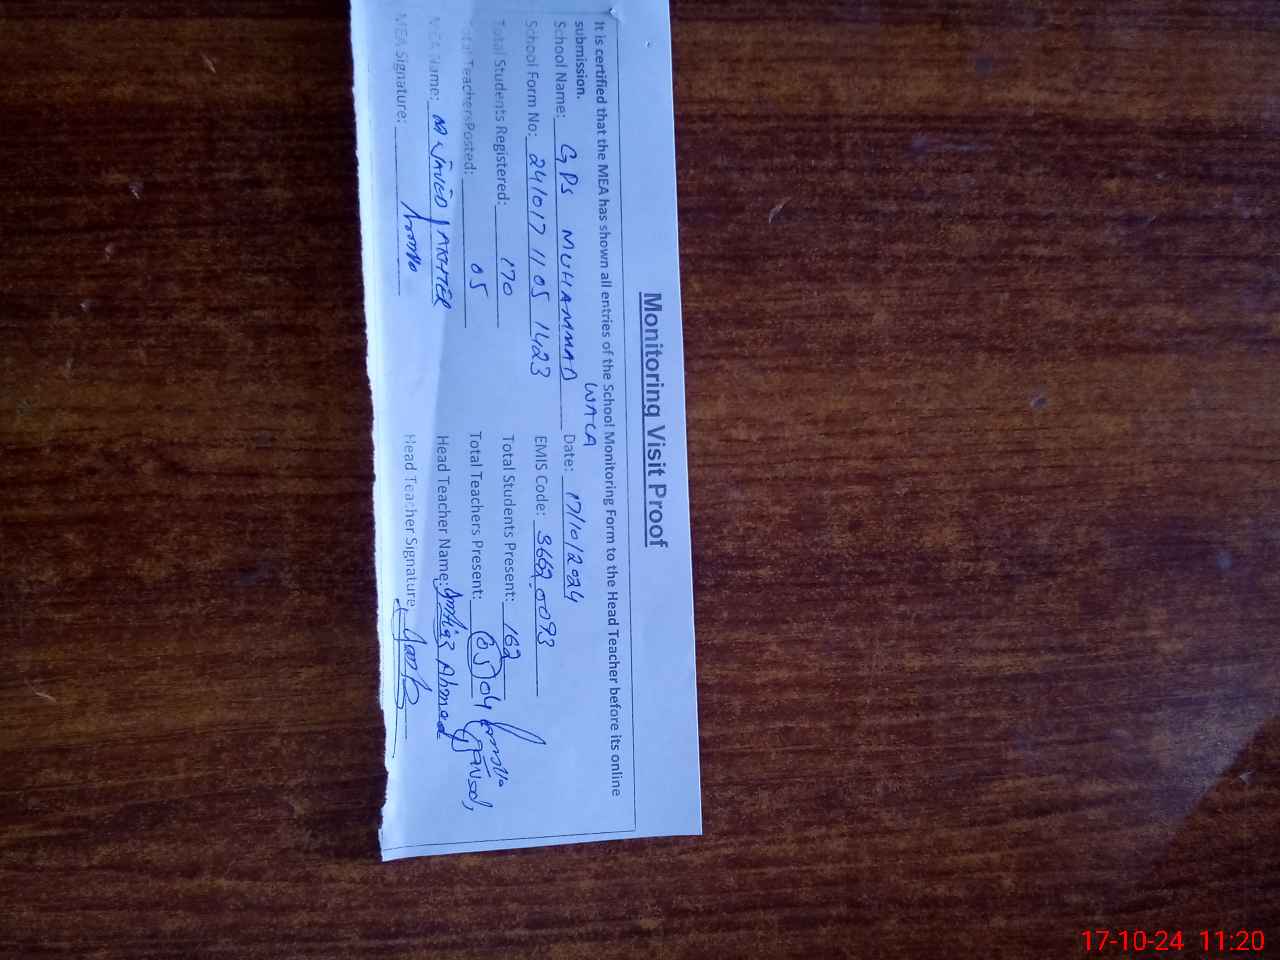 Monitoring Visit Proof
It is certified that the MEA has shown all entries of the School Monitoring Form to the Head Teacher before its online
submission.
School Name: GPS MUHAMMAD WALA Date: 17/10/2024
School Form No: 241017 1105 1423 EMIS Code: 36620093
Total Students Registered: 170 Total Students Present: 162
Total TeachersPosted: 05 Total Teachers Present: 05 04
MEA Name: M JAVED AKHTER Head Teacher Name: Imtiaz Ahmed
MEA Signature: Head Teacher Signature
17-10-24 11:20